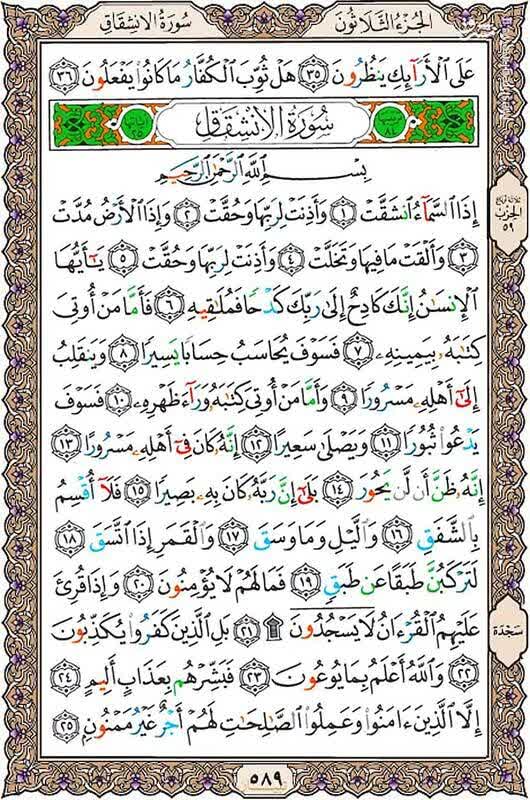 سُورَةُ الِانشِقَاقِ
الجُزءُ الثَّلاثُونَ
عَلَى ٱلْأَرَآئِكِ يَنظُرُونَ ٣٥ هَلْ ثُوِّبَ ٱلْكُفَّارُ مَا كَانُوا۟ يَفْعَلُونَ ٣٦
سُورَةُ الِانشِقَاقِ
بِسْمِ ٱللَّهِ ٱلرَّحْمَٰنِ ٱلرَّحِيمِ
إِذَا ٱلسَّمَآءُ ٱنشَقَّتْ ١ وَأَذِنَتْ لِرَبِّهَا وَحُقَّتْ ٢ وَإِذَا ٱلْأَرْضُ مُدَّتْ
٣ وَأَلْقَتْ مَا فِيهَا وَتَخَلَّتْ ٤ وَأَذِنَتْ لِرَبِّهَا وَحُقَّتْ ٥ يَٰٓأَيُّهَا
ٱلْإِنسَٰنُ إِنَّكَ كَادِحٌ إِلَىٰ رَبِّكَ كَدْحًا فَمُلَٰقِيهِ ٦ فَأَمَّا مَنْ أُوتِىَ
كِتَٰبَهُۥ بِيَمِينِهِۦ ٧ فَسَوْفَ يُحَاسَبُ حِسَابًا يَسِيرًا ٨ وَيَنقَلِبُ
إِلَىٰٓ أَهْلِهِۦ مَسْرُورًا ٩ وَأَمَّا مَنْ أُوتِىَ كِتَٰبَهُۥ وَرَآءَ ظَهْرِهِۦ ١٠ فَسَوْفَ
يَدْعُوا۟ ثُبُورًا ١١ وَيَصْلَىٰ سَعِيرًا ١٢ إِنَّهُۥ كَانَ فِىٓ أَهْلِهِۦ مَسْرُورًا ١٣
إِنَّهُۥ ظَنَّ أَن لَّن يَحُورَ ١٤ بَلَىٰٓ إِنَّ رَبَّهُۥ كَانَ بِهِۦ بَصِيرًا ١٥ فَلَآ أُقْسِمُ
بِٱلشَّفَقِ ١٦ وَٱلَّيْلِ وَمَا وَسَقَ ١٧ وَٱلْقَمَرِ إِذَا ٱتَّسَقَ ١٨
لَتَرْكَبُنَّ طَبَقًا عَن طَبَقٍ ١٩ فَمَا لَهُمْ لَا يُؤْمِنُونَ ٢٠ وَإِذَا قُرِئَ
عَلَيْهِمُ ٱلْقُرْءَانُ لَا يَسْجُدُونَ ۩ ٢١ بَلِ ٱلَّذِينَ كَفَرُوا۟ يُكَذِّبُونَ
٢٢ وَٱللَّهُ أَعْلَمُ بِمَا يُوعُونَ ٢٣ فَبَشِّرْهُم بِعَذَابٍ أَلِيمٍ ٢٤
إِلَّا ٱلَّذِينَ ءَامَنُوا۟ وَعَمِلُوا۟ ٱلصَّٰلِحَٰتِ لَهُمْ أَجْرٌ غَيْرُ مَمْنُونٍۭ ٢٥
الحِزب
٥٩
سَجْدَة
٥٨٩